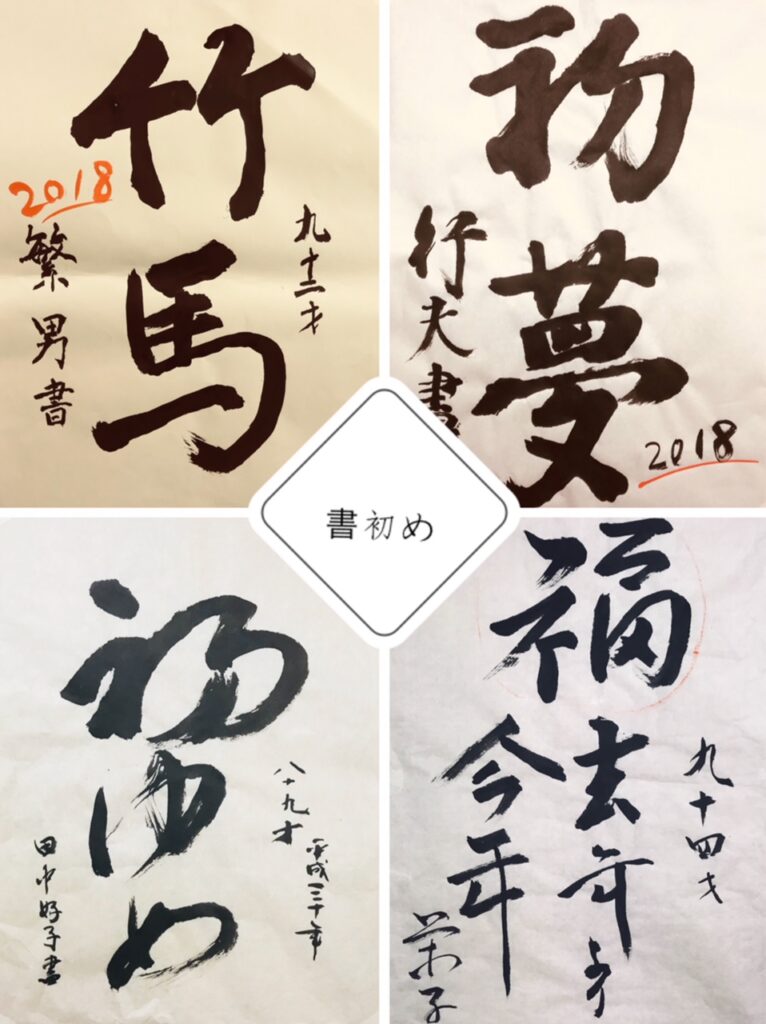 竹馬
九十二才
2018
繁男書
初夢
行夫書
2018
書初め
初ゆめ
八十九才
平成三十年
田中好子書
福
九十四才
去年より
今年
栄子